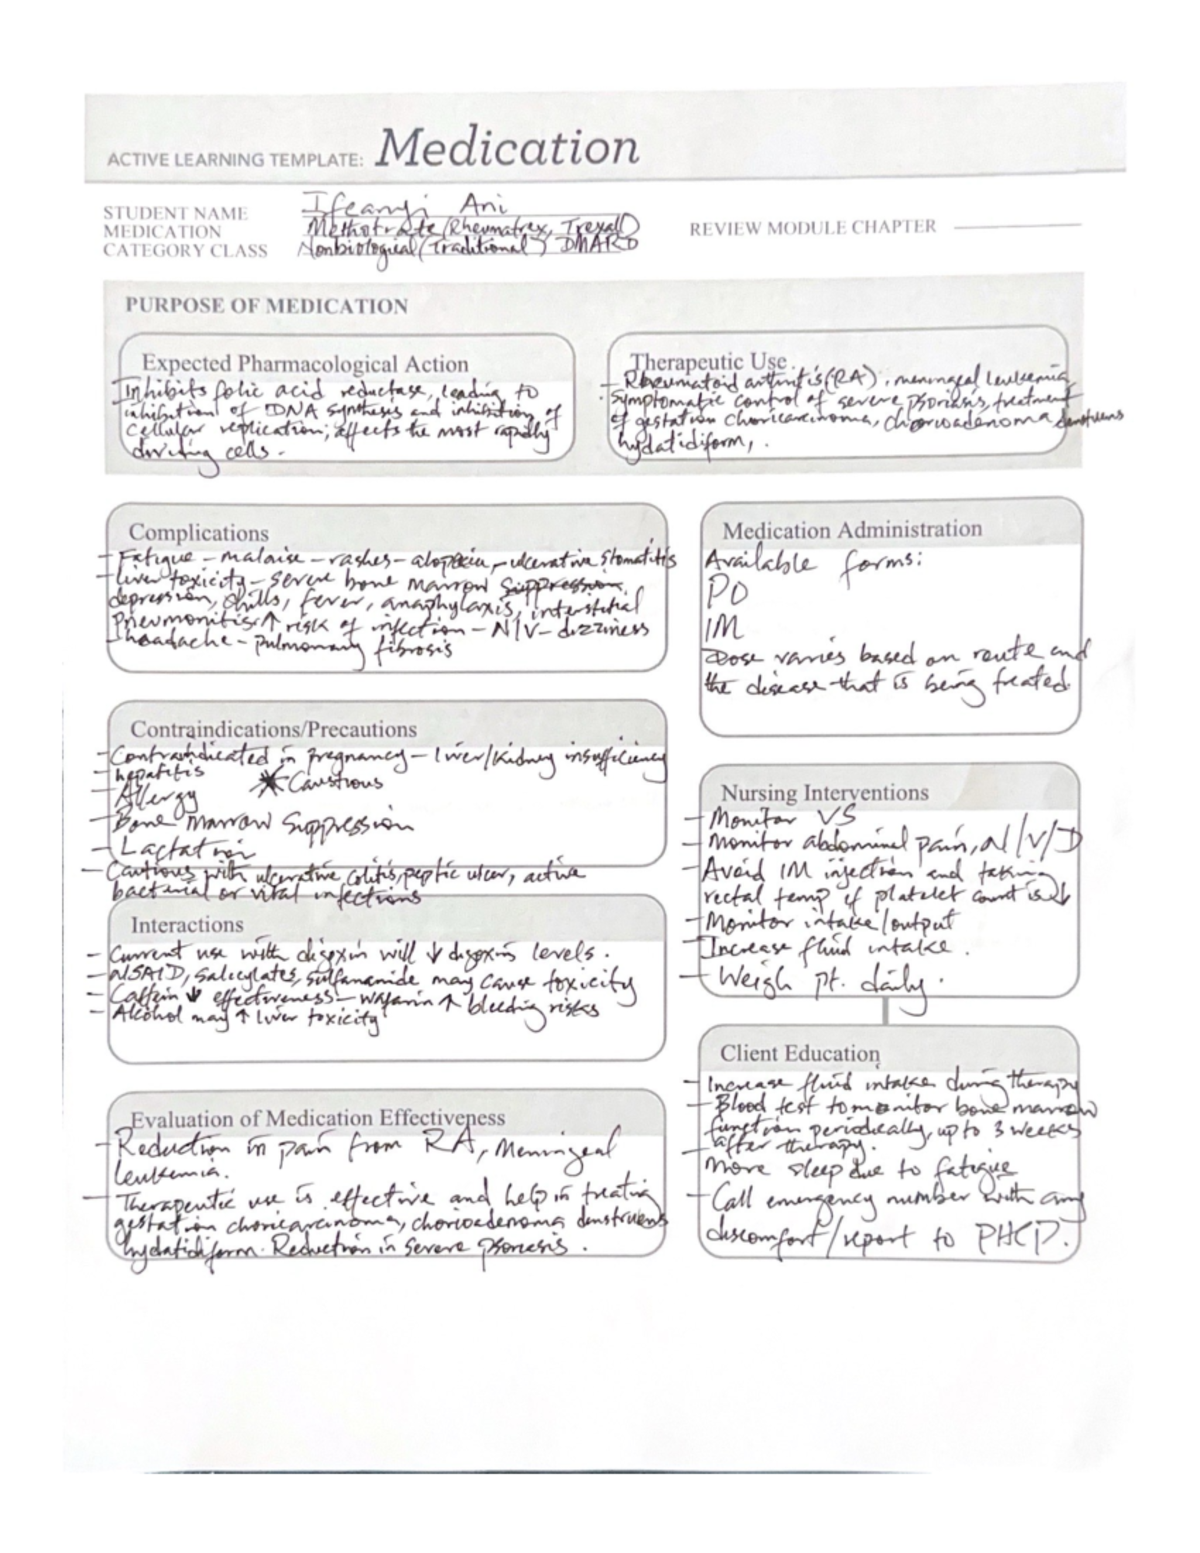 ACTIVE LEARNING TEMPLATE: Medication
STUDENT NAME Ifeanyi Ani
MEDICATION Methotrate (Rheumatrex, Trexall)
REVIEW MODULE CHAPTER
CATEGORY CLASS Nonbiological (Traditional) DMARD
PURPOSE OF MEDICATION
Expected Pharmacological Action
Inhibits folic acid reductase, leading to
inhibition of DNA synthesis and inhibition of
cellular replication; affects the most rapidly
dividing cells.
Therapeutic Use
- Rheumatoid arthritis (RA), meningeal leukemia,
symptomatic control of severe psoriasis, treatment
of gestation choricarcinoma, chorioadenoma denstruens
hydatidiform,.
Complications
- Fatigue - malaise - rashes - alopecia - ulcerative stomatitis
- liver toxicity - severe bone marrow suppression,
depression, chills, fever, anaphylaxis, interstitial
pneumonitis ↑ risk of infection - N/V - dizziness
- headache - pulmonary fibrosis
Medication Administration
Available forms:
PO
IM
Dose varies based on route and
the disease that is being treated.
Contraindications/Precautions
- Contraindicated in pregnancy - liver/kidney insufficiency
- hepatitis * Caustious
- Allergy
- Bone marrow suppression
- Lactation
- Cautious with ulcerative colitis, peptic ulcer, active
bacterial or viral infections
Nursing Interventions
- Monitor VS
- Monitor abdominal pain, N/V/D
- Avoid IM injection and taking
rectal temp if platelet count is ↓
- Monitor intake/output
- Increase fluid intake.
- Weigh pt. daily.
Interactions
- Current use with digoxin will ↓ digoxin levels.
- NSAID, salicylates, sulfanamide may cause toxicity
- Caffein ↓ effectiveness - wafarin ↑ bleeding risks
- Alcohol may ↑ liver toxicity
Client Education
- Increase fluid intake during therapy
- Blood test to monitor bone marrow
function periodically, up to 3 weeks
after therapy.
- More sleep due to fatigue
- Call emergency number with any
discomfort/report to PHCP.
Evaluation of Medication Effectiveness
- Reduction in pain from RA, Meningeal
leukemia.
- Therapeutic use is effective and help in treating
gestation choricarcinoma, chorioadenoma denstruens
hydatidiform. Reduction in severe psoriasis.